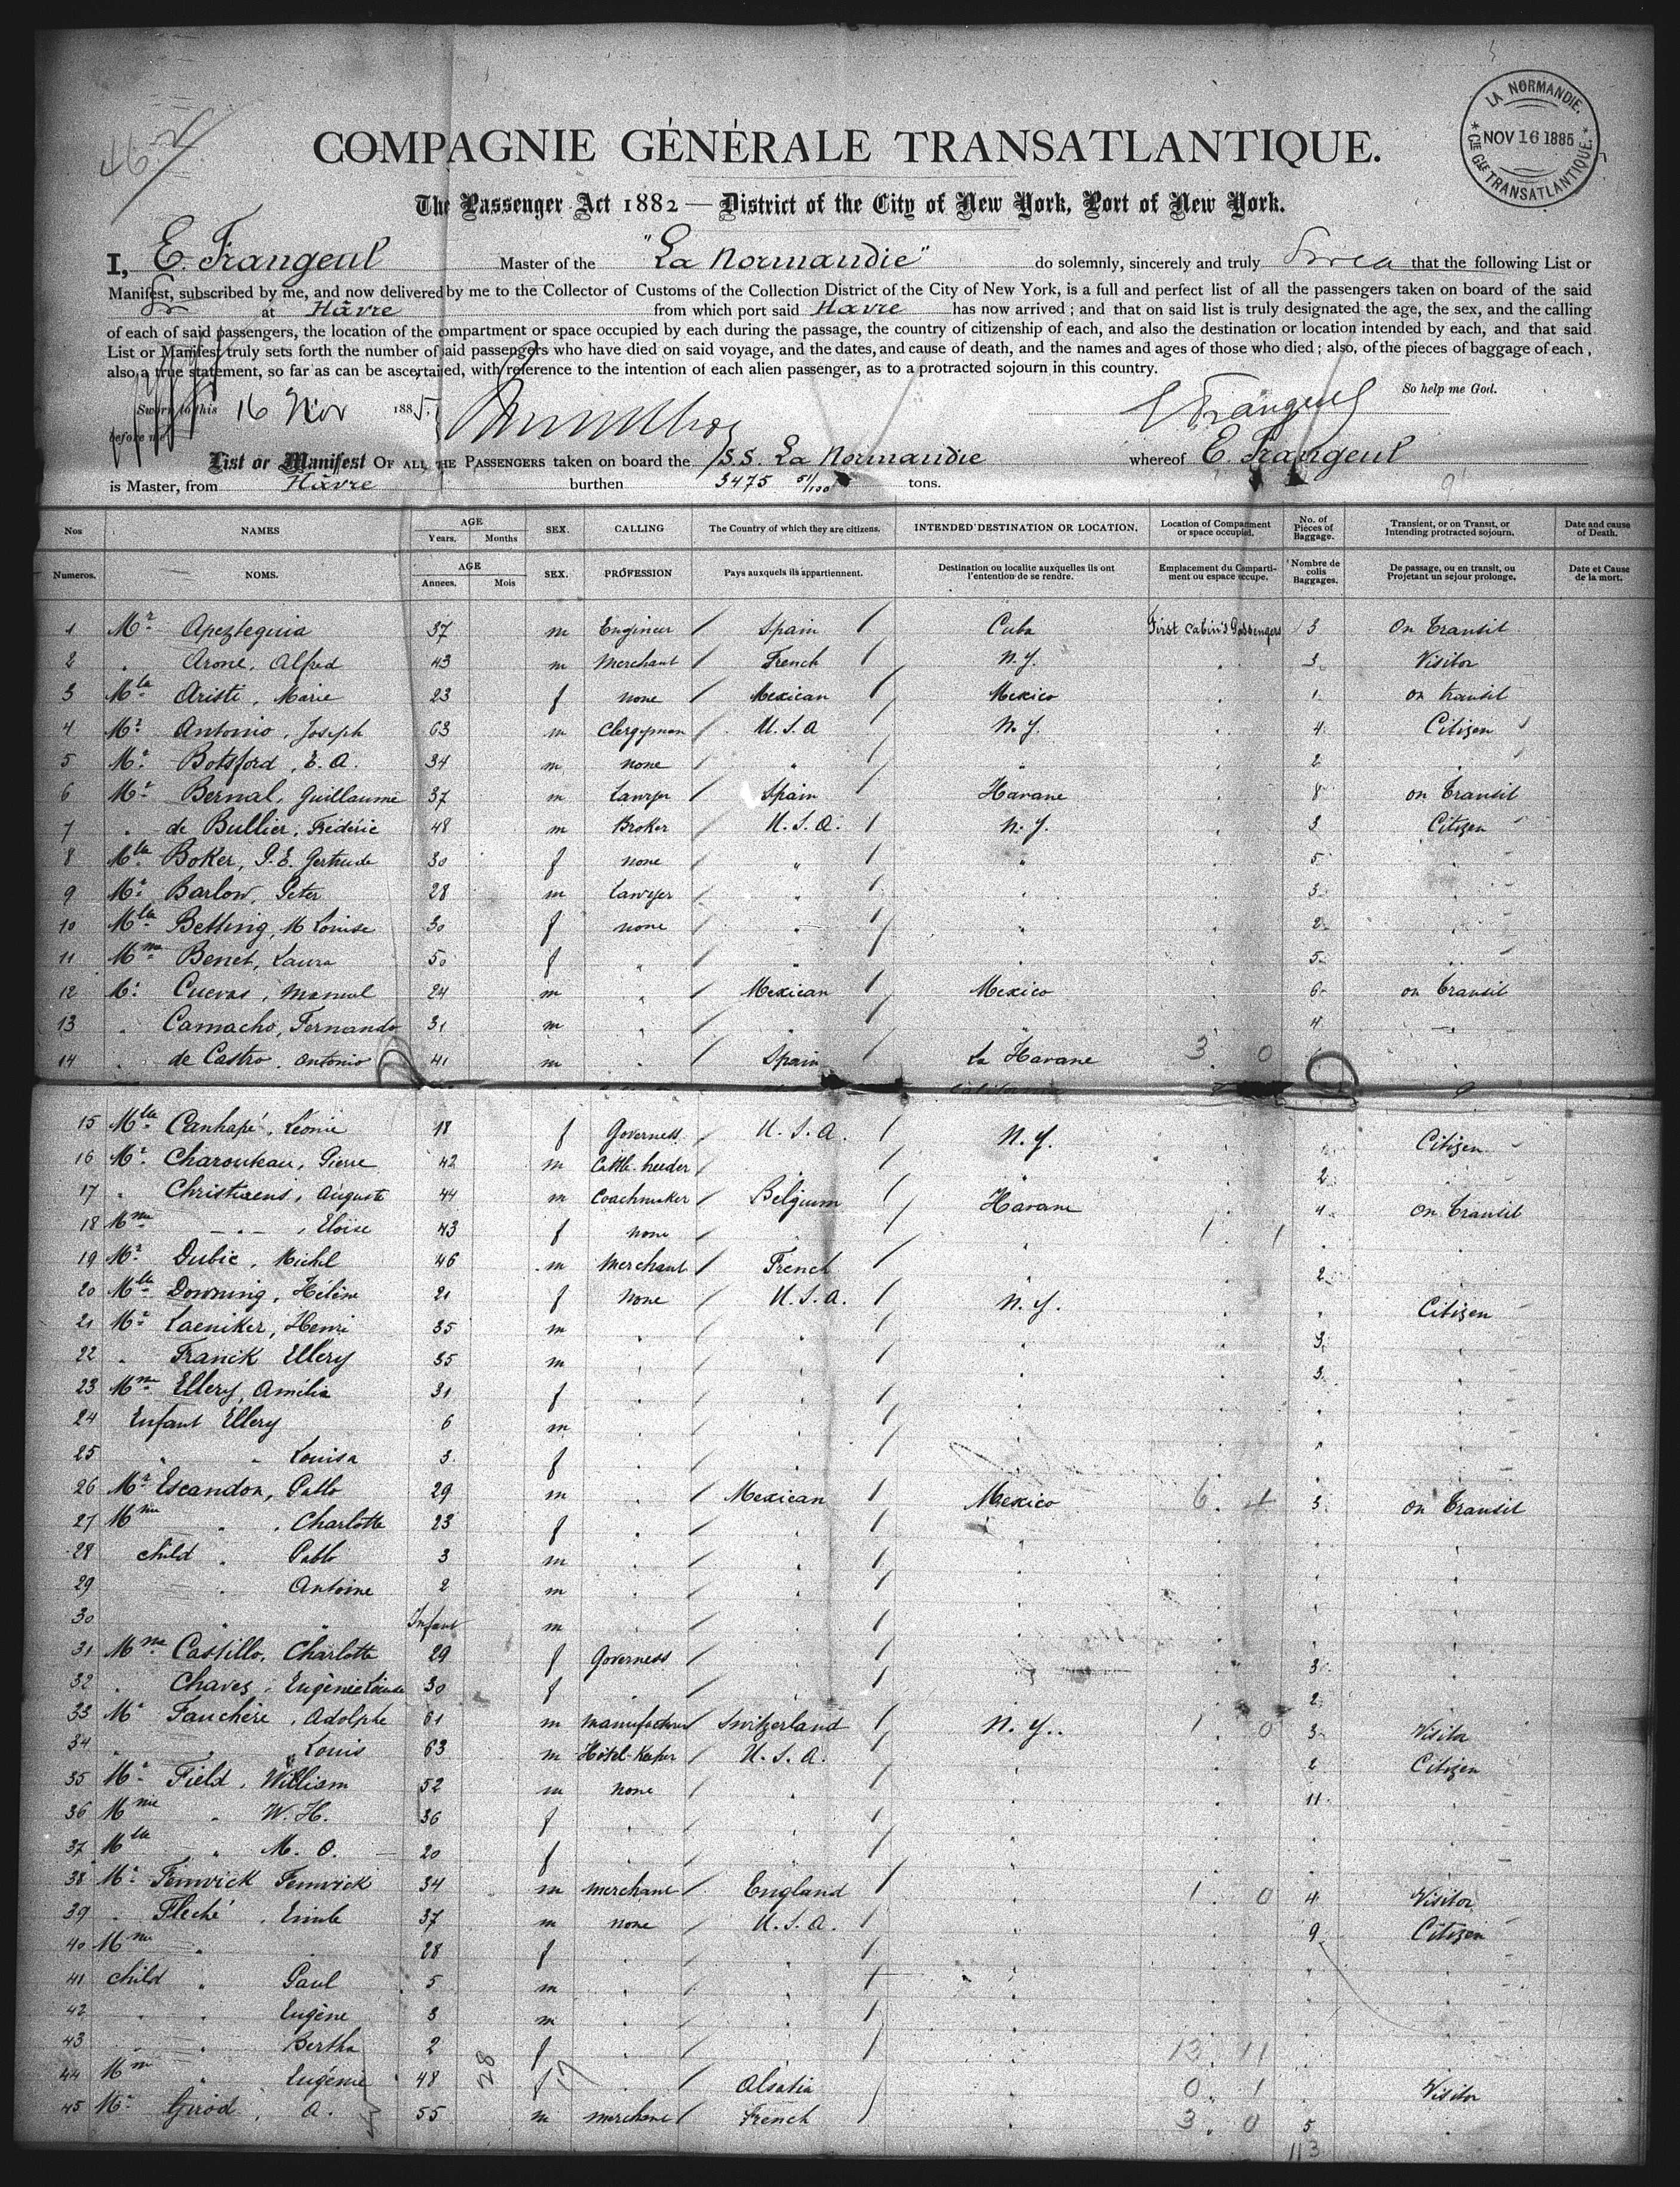 LA NORMANDIE.
NOV 16 1885
Cie Gle TRANSATLANTIQUE.
COMPAGNIE GÉNÉRALE TRANSATLANTIQUE.
The Passenger Act 1882 — District of the City of New York, Port of New York.
I, E. Frangeul Master of the "La Normandie" do solemnly, sincerely and truly that the following List or
Manifest, subscribed by me, and now delivered by me to the Collector of Customs of the Collection District of the City of New York, is a full and perfect list of all the passengers taken on board of the said
at Hâvre from which port said Havre has now arrived ; and that on said list is truly designated the age, the sex, and the calling
of each of said passengers, the location of the compartment or space occupied by each during the passage, the country of citizenship of each, and also the destination or location intended by each, and that said
List or Manifest truly sets forth the number of said passengers who have died on said voyage, and the dates, and cause of death, and the names and ages of those who died ; also, of the pieces of baggage of each ,
also a true statement, so far as can be ascertained, with reference to the intention of each alien passenger, as to a protracted sojourn in this country.
So help me God.
Sworn to this 16 Nov 1885. E Frangeul
before me
List or Manifest OF ALL THE PASSENGERS taken on board the S.S. La Normandie whereof E. Frangeul
is Master, from Hâvre burthen 3475 51/100 tons.
Nos NAMES AGE Years. Months SEX. CALLING The Country of which they are citizens. INTENDED DESTINATION OR LOCATION. Location of Compartment or space occupied. No. of Pieces of Baggage. Transient, or on Transit, or Intending protracted sojourn. Date and cause of Death.
Numeros. NOMS. AGE Annees. Mois SEX. PROFESSION Pays auxquels ils appartiennent. Destination ou localite auxquelles ils ont l'entention de se rendre. Emplacement du Comparti-ment ou espace occupe. Nombre de colis Baggages. De passage, ou en transit, ou Projetant un sejour prolonge. Date et Cause de la mort.
1 Mr Apezteguia 37 m Engineer Spain Cuba First Cabin's Passengers 3 On Transit
2 " Arone, Alfred 43 m Merchant French N.Y. 3 Visitor
3 Mlle Aristi, Marie 23 f none Mexican Mexico 1 on transit
4 Mr Antonio, Joseph 63 m Clergyman U.S.A N.Y. 4 Citizen
5 Mr Botsford, E.A. 34 m none " " 2 "
6 Mr Bernal, Guillaume 37 m Lawyer Spain Havane 8 on Transit
7 " de Bullier, Frédéric 48 m Broker U.S.A. N.Y. 3 Citizen
8 Mlle Boker, G.E. Gertrude 30 f none " " 5 "
9 Mr Barlow, Peter 28 m Lawyer " " 3 "
10 Mlle Betting, M Louise 30 f none " " 2 "
11 Mme Benet, Laura 50 f " " " 5 "
12 Mr Cuevas, Manuel 24 m " Mexican Mexico 6 on transit
13 " Camacho, Fernando 31 m " " " 4 "
14 " de Castro, Antonio 41 m " Spain La Havane 3 0
15 Mlle Canhapé, Léonie 18 f Governess U.S.A. N.Y. Citizen
16 Mr Charouteau, Pierre 42 m Cattle-breeder " " 2 "
17 " Christiaens, Auguste 44 m Coachmaker Belgium Havane 4 On Transit
18 Mme " , Eloise 43 f none " " 1 1 "
19 Mr Dubic, Michel 46 m Merchant French " 2 "
20 Mlle Downing, Hélène 21 f None U.S.A. N.Y. " Citizen
21 Mr Laeniker, Henri 35 m " " " 3 "
22 " Franck Ellery 35 m " " " 3 "
23 Mme Ellery, Amélia 31 f " " " " "
24 Enfant Ellery 6 m " " " " "
25 " " Louisa 3 f " " " " "
26 Mr Escandon, Pablo 29 m " Mexican Mexico 6 4 3 on Transit
27 Mme " , Charlotte 23 f " " " " "
28 child " Pablo 3 m " " " " "
29 " Antoine 2 m " " " " "
30 " " Infant m " " " " "
31 Mme Castillo, Charlotte 29 f Governess " " 3 "
32 " Chaves, Eugénie Louise 30 f " " " 2 "
33 Mr Fauchère, Adolphe 61 m Manufacturer Switzerland N.Y. 1 0 3 Visitor
34 " " Louis 63 m Hôtel-Keeper U.S.A. " 2 Citizen
35 Mr Field, William 52 m none " " 11 "
36 Mme " W.H. 36 f " " " " "
37 Mlle " M.O. 20 f " " " " "
38 Mr Fenwick Fenwick 34 m merchant England " 1 0 4 Visitor
39 " Fleché, Emile 37 m none U.S.A. " 9 Citizen
40 Mme " " 28 f " " " " "
41 child " Paul 5 m " " " " "
42 " " Eugène 3 m " " " " "
43 " " Bertha 2 f " " " 13 11 "
44 Mme " Eugénie 48 f " Alsatia " 0 1 Visitor
45 Mr Girod, A. 55 m merchant French " 3 0 5 "
28 17
113